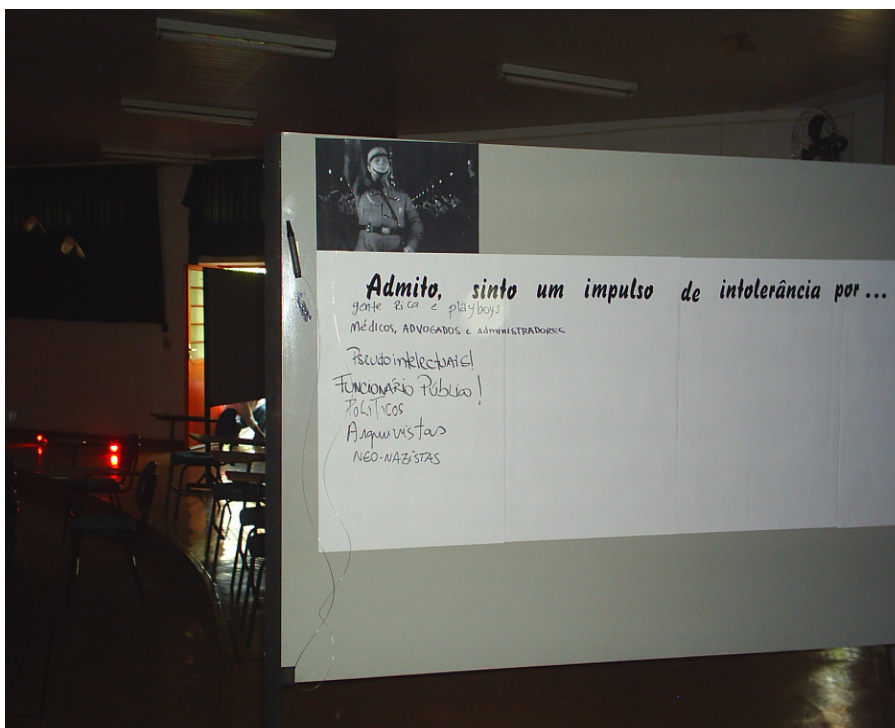 Admito, sinto um impulso de intolerância por ...
gente Rica e playboys
Médicos, ADVOGADOS e ADMINISTRADORES
Pseudointelectuais!
FUNCIONÁRIO Público!
POLÍTICOS
Arquivistas
NEO-NAZISTAS